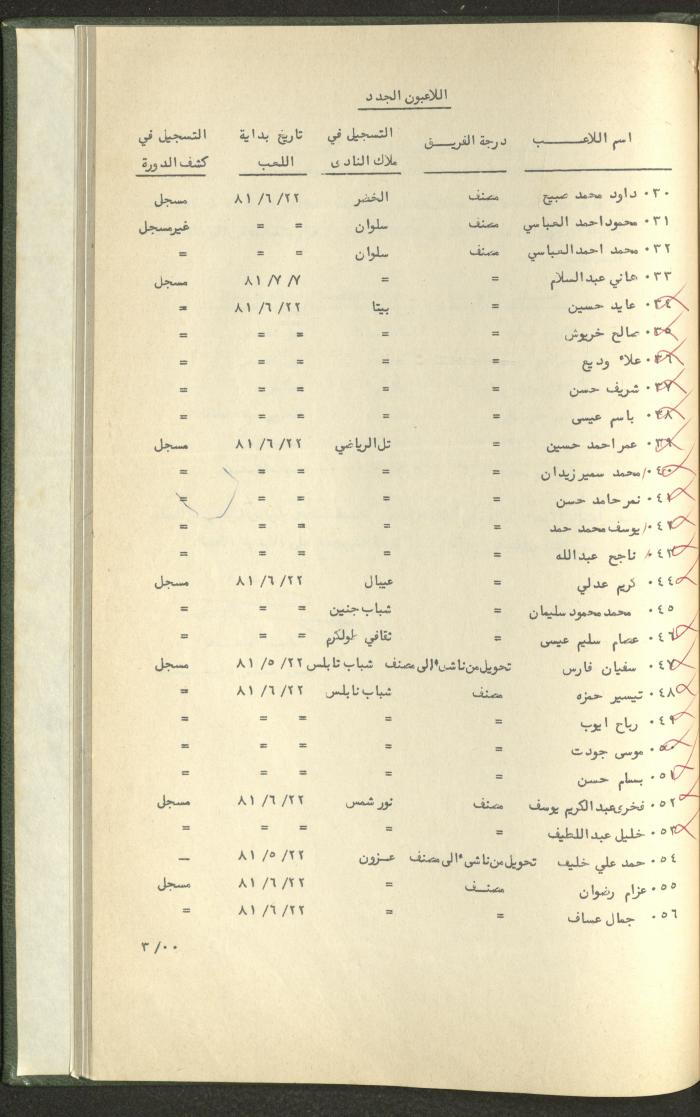 اللاعبون الجدد
اسم اللاعـــب درجة الفريـــق التسجيل في تاريخ بداية التسجيل في
ملاك النادى اللعب كشف الدورة
٠٣٠ داود محمد صبيح مصنف الخضر ٨١/٦/٢٢ مسجل
٠٣١ محمود احمد العباسي مصنف سلوان = = غير مسجل
٠٣٢ محمد احمد العباسي مصنف سلوان = = =
٠٣٣ هاني عبد السلام = = ٨١/٧/٧ مسجل
٠٣٤ عايد حسين = بيتا ٨١/٦/٢٢ =
٠٣٥ صالح خريوش = = = = =
٠٣٦ علاء وديع = = = = =
٠٣٧ شريف حسن = = = = =
٠٣٨ باسم عيسى = = = = =
٠٣٩ عمر احمد حسين = تل الرياضي ٨١/٦/٢٢ مسجل
٠٤٠ محمد سمير زيدان = = = = =
٠٤١ نمر حامد حسن = = = = =
٠٤٢ يوسف محمد حمد = = = = =
٠٤٣ ناجح عبدالله = = = = =
٠٤٤ كريم عدلي = عيبال ٨١/٦/٢٢ مسجل
٠٤٥ محمد محمود سليمان = شباب جنين = = =
٠٤٦ عصام سليم عيسى = ثقافي طولكرم = = =
٠٤٧ سفيان فارس تحويل من ناشىء الى مصنف شباب نابلس ٨١/٥/٢٢ مسجل
٠٤٨ تيسير حمزه مصنف شباب نابلس ٨١/٦/٢٢ =
٠٤٩ رباح ايوب = = = = =
٠٥٠ موسى جودت = = = = =
٠٥١ بسام حسن = = = = =
٠٥٢ فخرى عبد الكريم يوسف مصنف نور شمس ٨١/٦/٢٢ مسجل
٠٥٣ خليل عبد اللطيف = = = = =
٠٥٤ حمد علي خليف تحويل من ناشىء الى مصنف عـزون ٨١/٥/٢٢ —
٠٥٥ عزام رضوان مصنـف = ٨١/٦/٢٢ مسجل
٠٥٦ جمال عساف = = ٨١/٦/٢٢ =
٣/٠٠